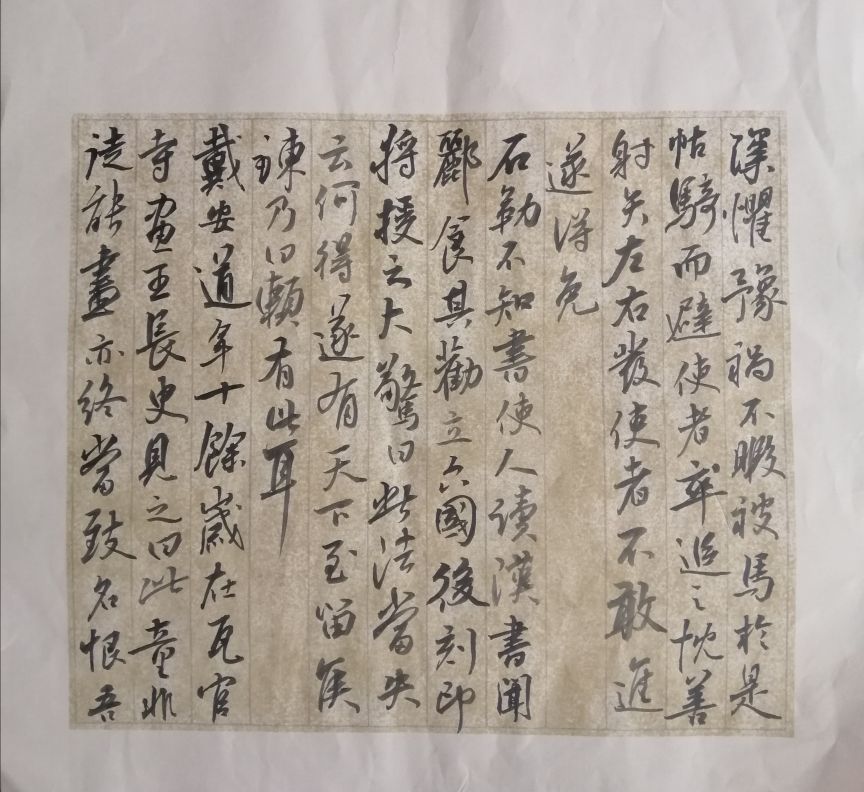 深懼豫禍不暇被馬於是
帖騎而避使者卒追之忱善
射矢左右發使者不敢進
遂得免
石勒不知書使人讀漢書聞
酈食其勸立六國後刻印
將授之大驚曰此法當失
云何得遂有天下至留侯
諫乃曰賴有此耳
戴安道年十餘歲在瓦官
寺畫王長史見之曰此童非
徒能畫亦終當致名恨吾